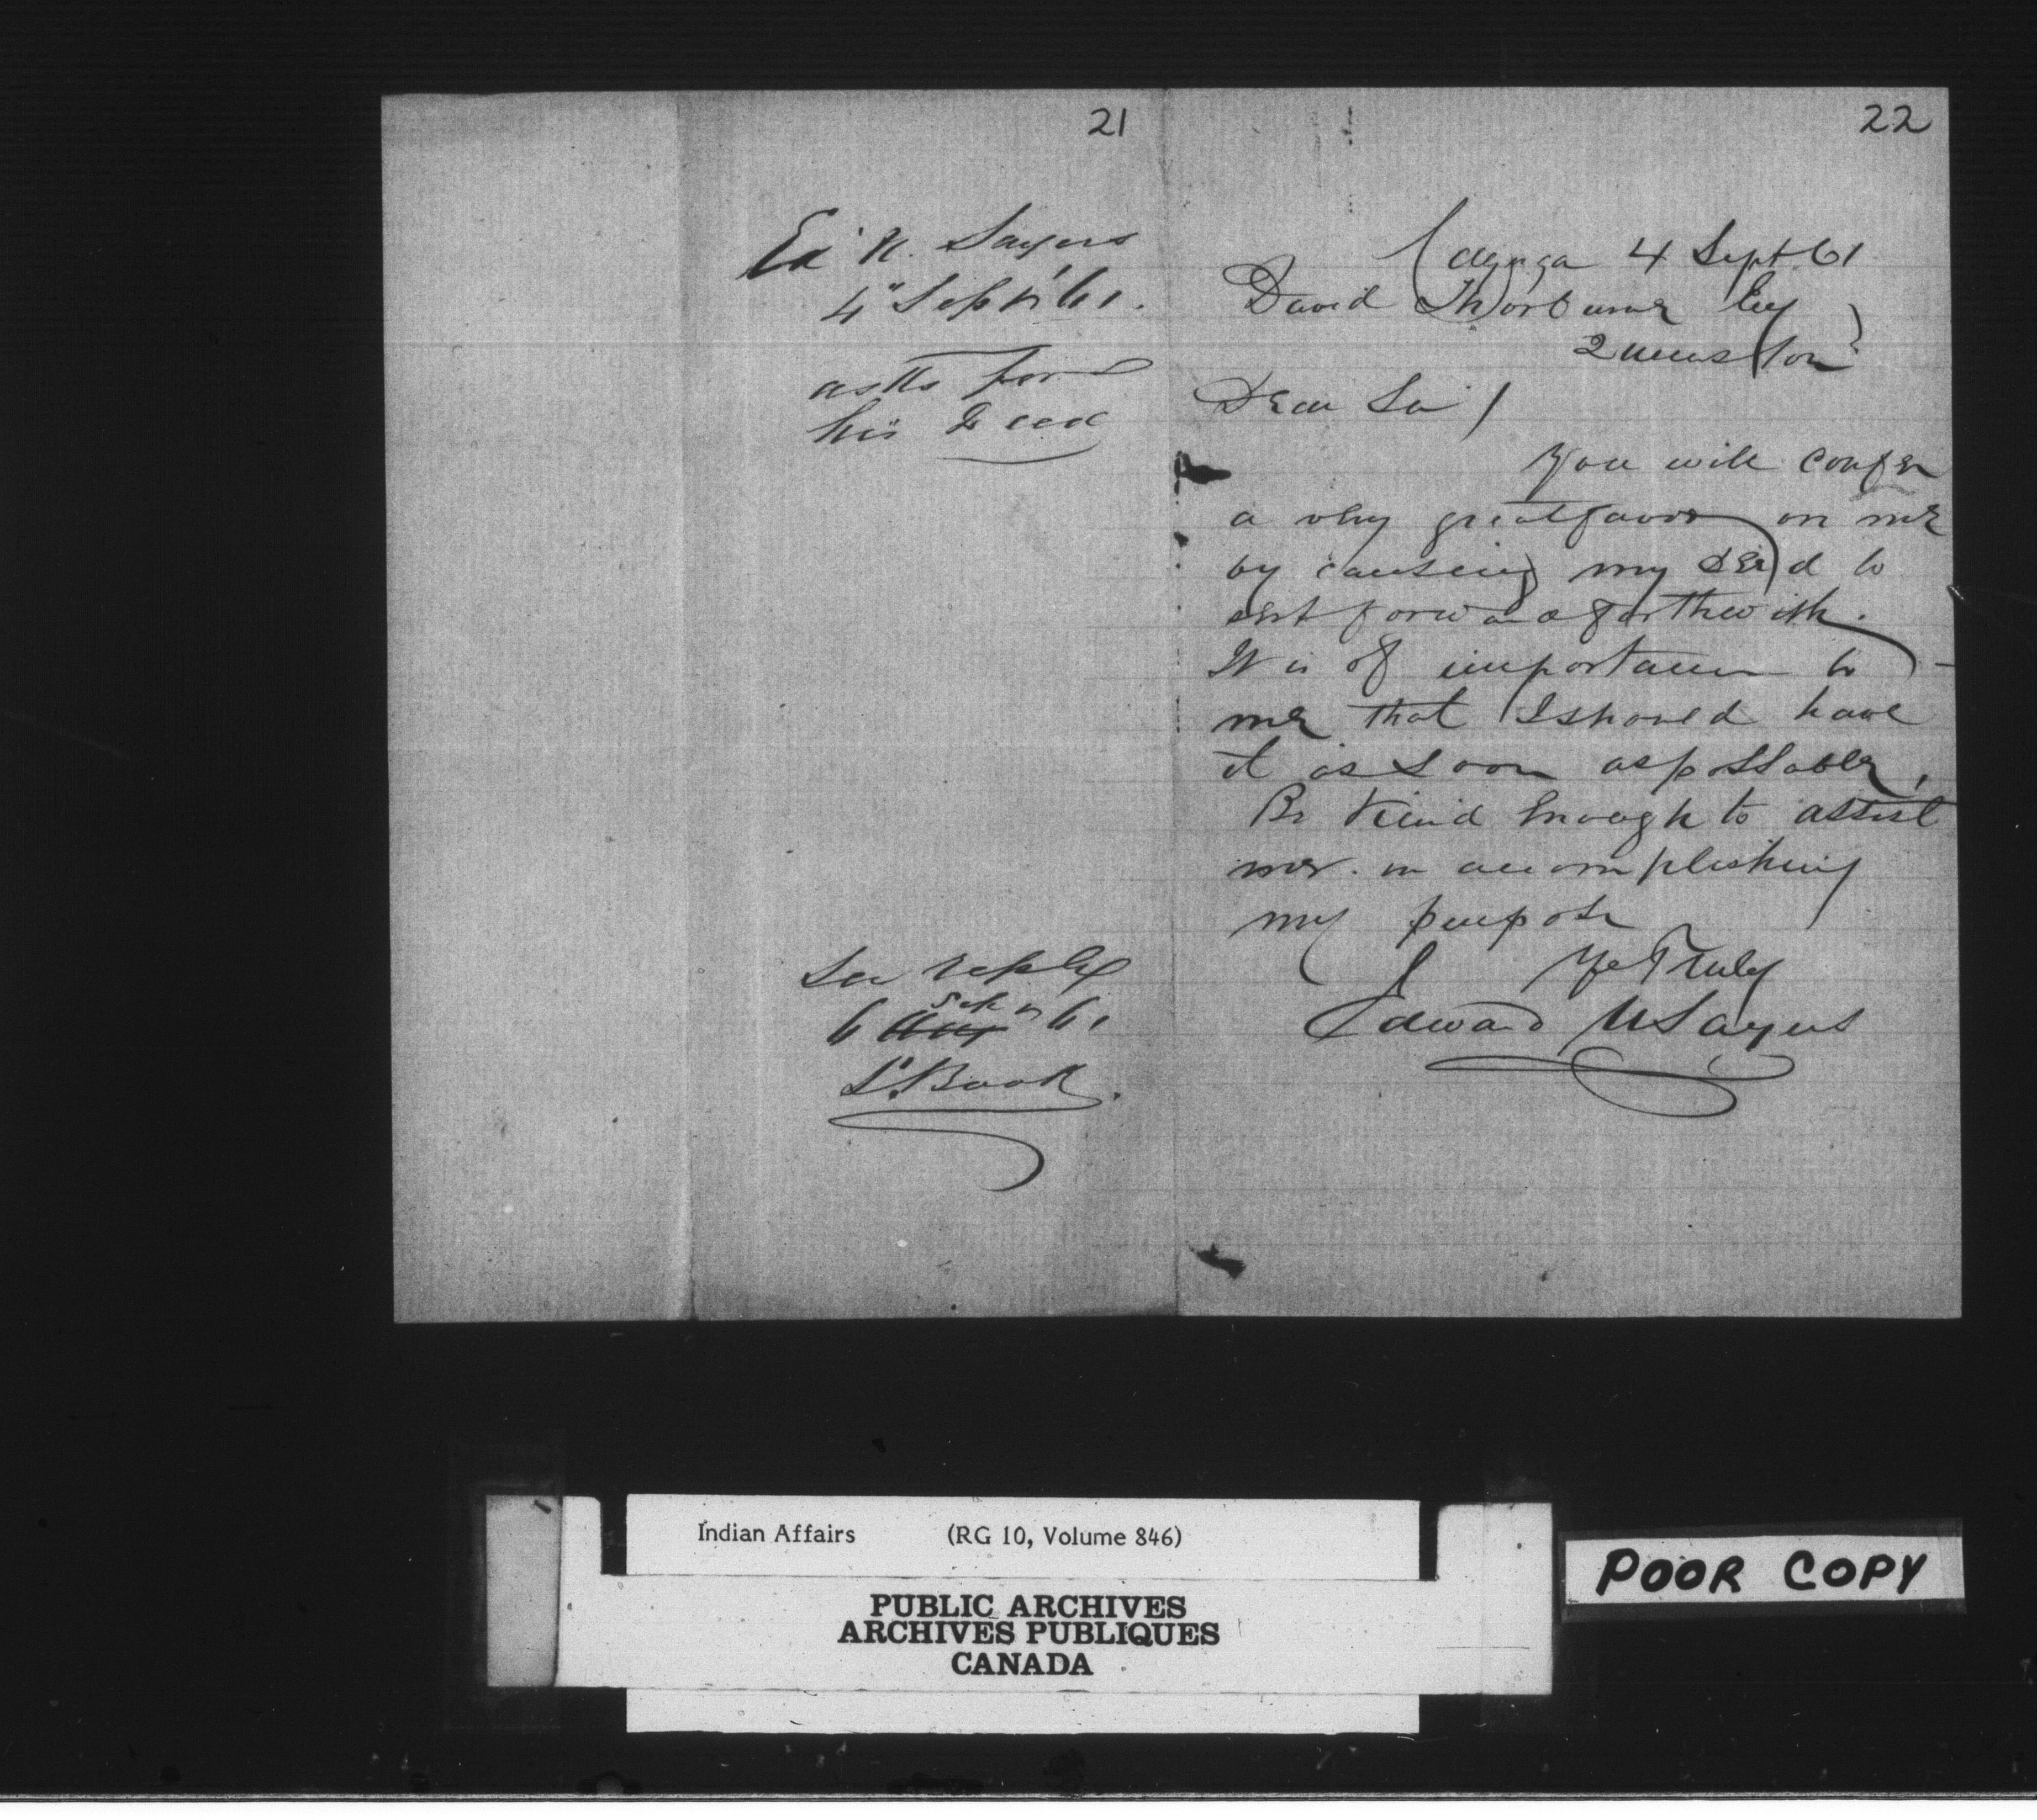 21
Ed N. Sayers
4" Sept '61.
asks for
his Deed
See reply
6 Aug Sept 61
L. Book.
22
Cayuga 4 Sept 61
David Thorburne Esq
Queenston
Dear Sir /
You will confer
a very great favor on me
by causing my deed to
sent forward forthwith.
It is of importance to
me that I should have
it as soon as possable,
Be kind enough to assist
me in accomplishing
my purpose
Yrs Truly
Edward N Sayers
Indian Affairs (RG 10, Volume 846)
PUBLIC ARCHIVES
ARCHIVES PUBLIQUES
CANADA
POOR COPY